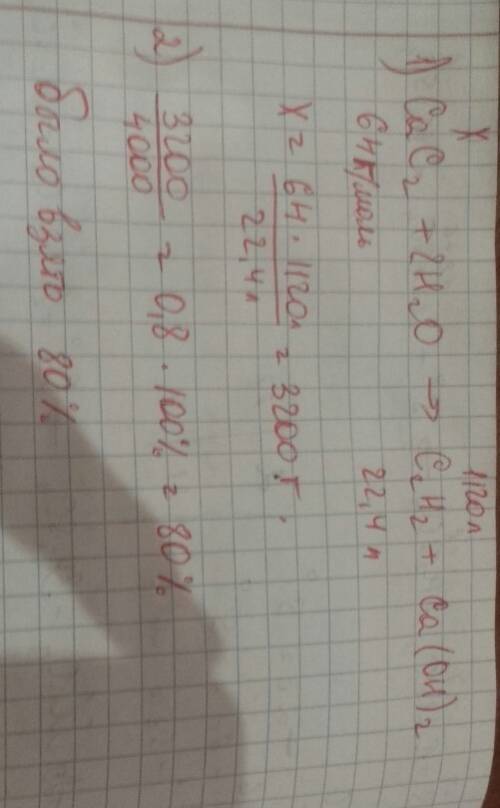 x 1120л
1) CaC₂ + 2H₂O → C₂H₂ + Ca(OH)₂
64г/моль 22,4 л
x = 64 · 1120л / 22,4л = 3200 г.
2) 3200 / 4000 = 0,8 · 100% = 80%
было взято 80%